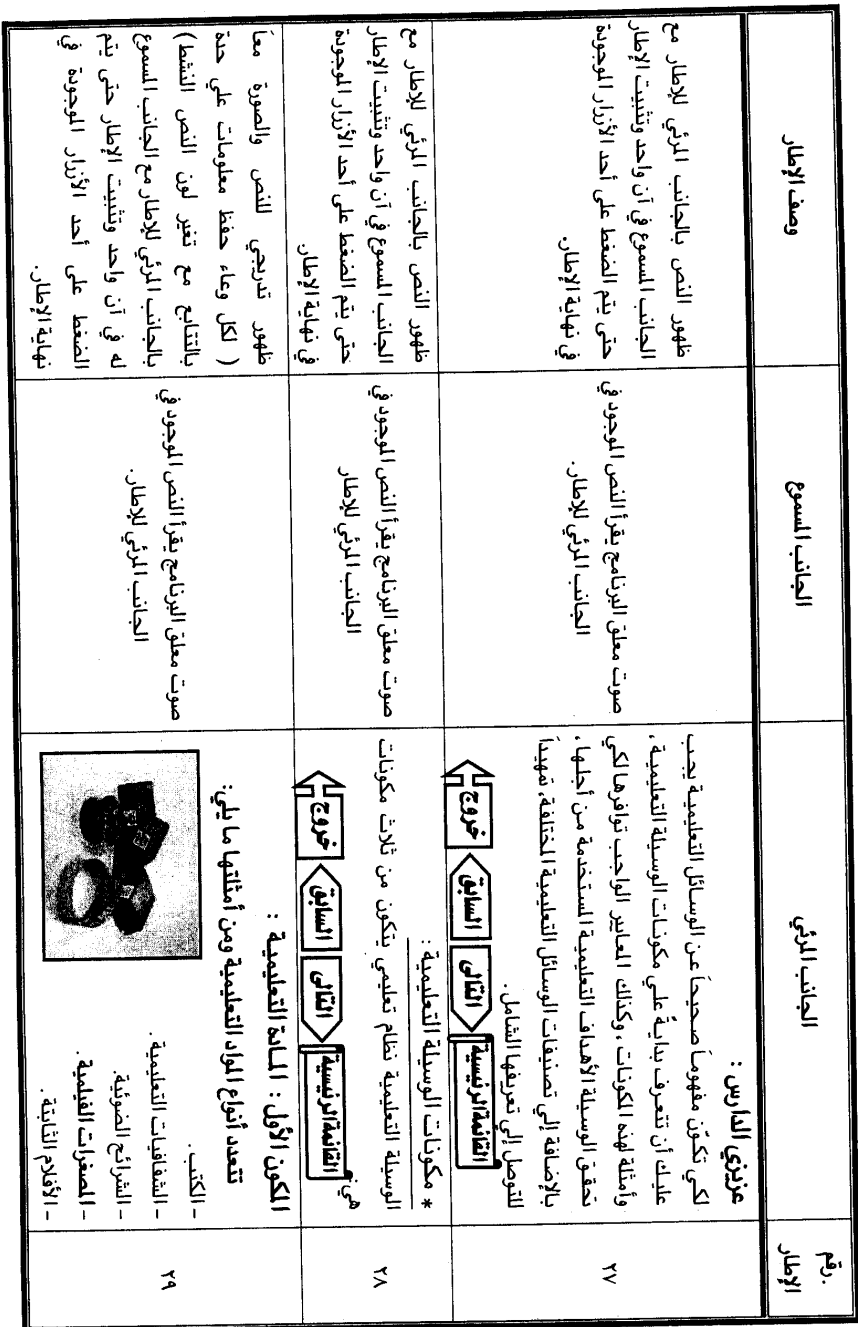 رقم
الإطار
الجانب المرئي
الجانب المسموع
وصف الإطار
٢٧
عزيزي الدارس :
لكي تكوّن مفهوماً صحيحاً عن الوسائل التعليمية يجب
عليك أن تتعرف بدايةً علي مكونات الوسيلة التعليمية ،
وأمثلة لهذه المكونات ، وكذلك المعايير الواجب توافرها لكي
تحقق الوسيلة الأهداف التعليمية المستخدمة من أجلها ،
بالإضافة إلي تصنيفات الوسائل التعليمية المختلفة، تمهيداً
للتوصل إلي تعريفها الشامل.
القائمة الرئيسية
التالى
السابق
خروج
صوت معلق البرنامج يقرأ النص الموجود في
الجانب المرئي للإطار.
ظهور النص بالجانب المرئي للإطار مع
الجانب المسموع في آن واحد وتثبيت الإطار
حتى يتم الضغط على أحد الأزرار الموجودة
في نهاية الإطار.
٢٨
* مكونات الوسيلة التعليمية :
الوسيلة التعليمية نظام تعليمي يتكون من ثلاث مكونات
هي:
القائمة الرئيسية
التالى
السابق
خروج
صوت معلق البرنامج يقرأ النص الموجود في
الجانب المرئي للإطار
ظهور النص بالجانب المرئي للإطار مع
الجانب المسموع في آن واحد وتثبيت الإطار
حتى يتم الضغط على أحد الأزرار الموجودة
في نهاية الإطار.
٢٩
المكون الأول : المادة التعليمية :
تتعدد أنواع المواد التعليمية ومن أمثلتها ما يلي:
- الكتب .
- الشفافيات التعليمية .
- الشرائح الضوئية.
- المصغرات الفيلمية .
- الأفلام الثابتة .
صوت معلق البرنامج يقرأ النص الموجود في
الجانب المرئي للإطار.
ظهور تدريجي للنص والصورة معاً
( لكل وعاء حفظ معلومات علي حدة
بالتتابع مع تغير لون النص النشط)
بالجانب المرئي للإطار مع الجانب المسموع
له في آن واحد وتثبيت الإطار حتى يتم
الضغط على أحد الأزرار الموجودة في
نهاية الإطار.